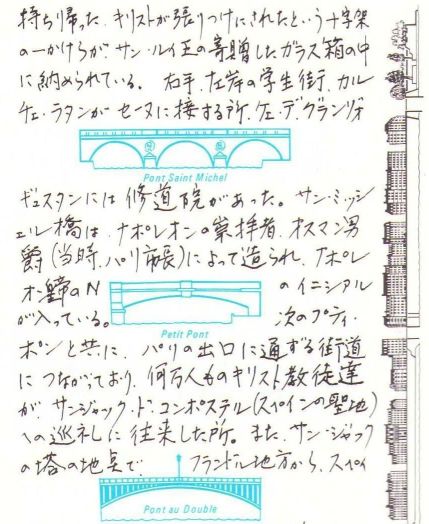 持ち帰った、キリストが張りつけにされたという十字架
の一かけらが、サン・ルイ王の寄贈したガラス箱の中
に納められている。 右手、左岸の学生街、カル
チェ・ラタンがセーヌに接する所、ケ・デ・グランゾオ
Pont Saint Michel
ギュスタンには修道院があった。サン・ミッシ
ェル橋は、ナポレオンの崇拝者、オスマン男
爵(当時、パリ市長)によって造られ、ナポレ
オン帝のNのイニシアル
が入っている。次のプティ・
Petit Pont
ポンと共に、パリの出口に通ずる街道
につながっており、何万人ものキリスト教徒達
が、サンジャック・ド・コンポステル(スペインの聖地)
への巡礼に往来した所。また、サン・ジャック
の塔の地点で フランドル地方から、スペイ
Pont au Double